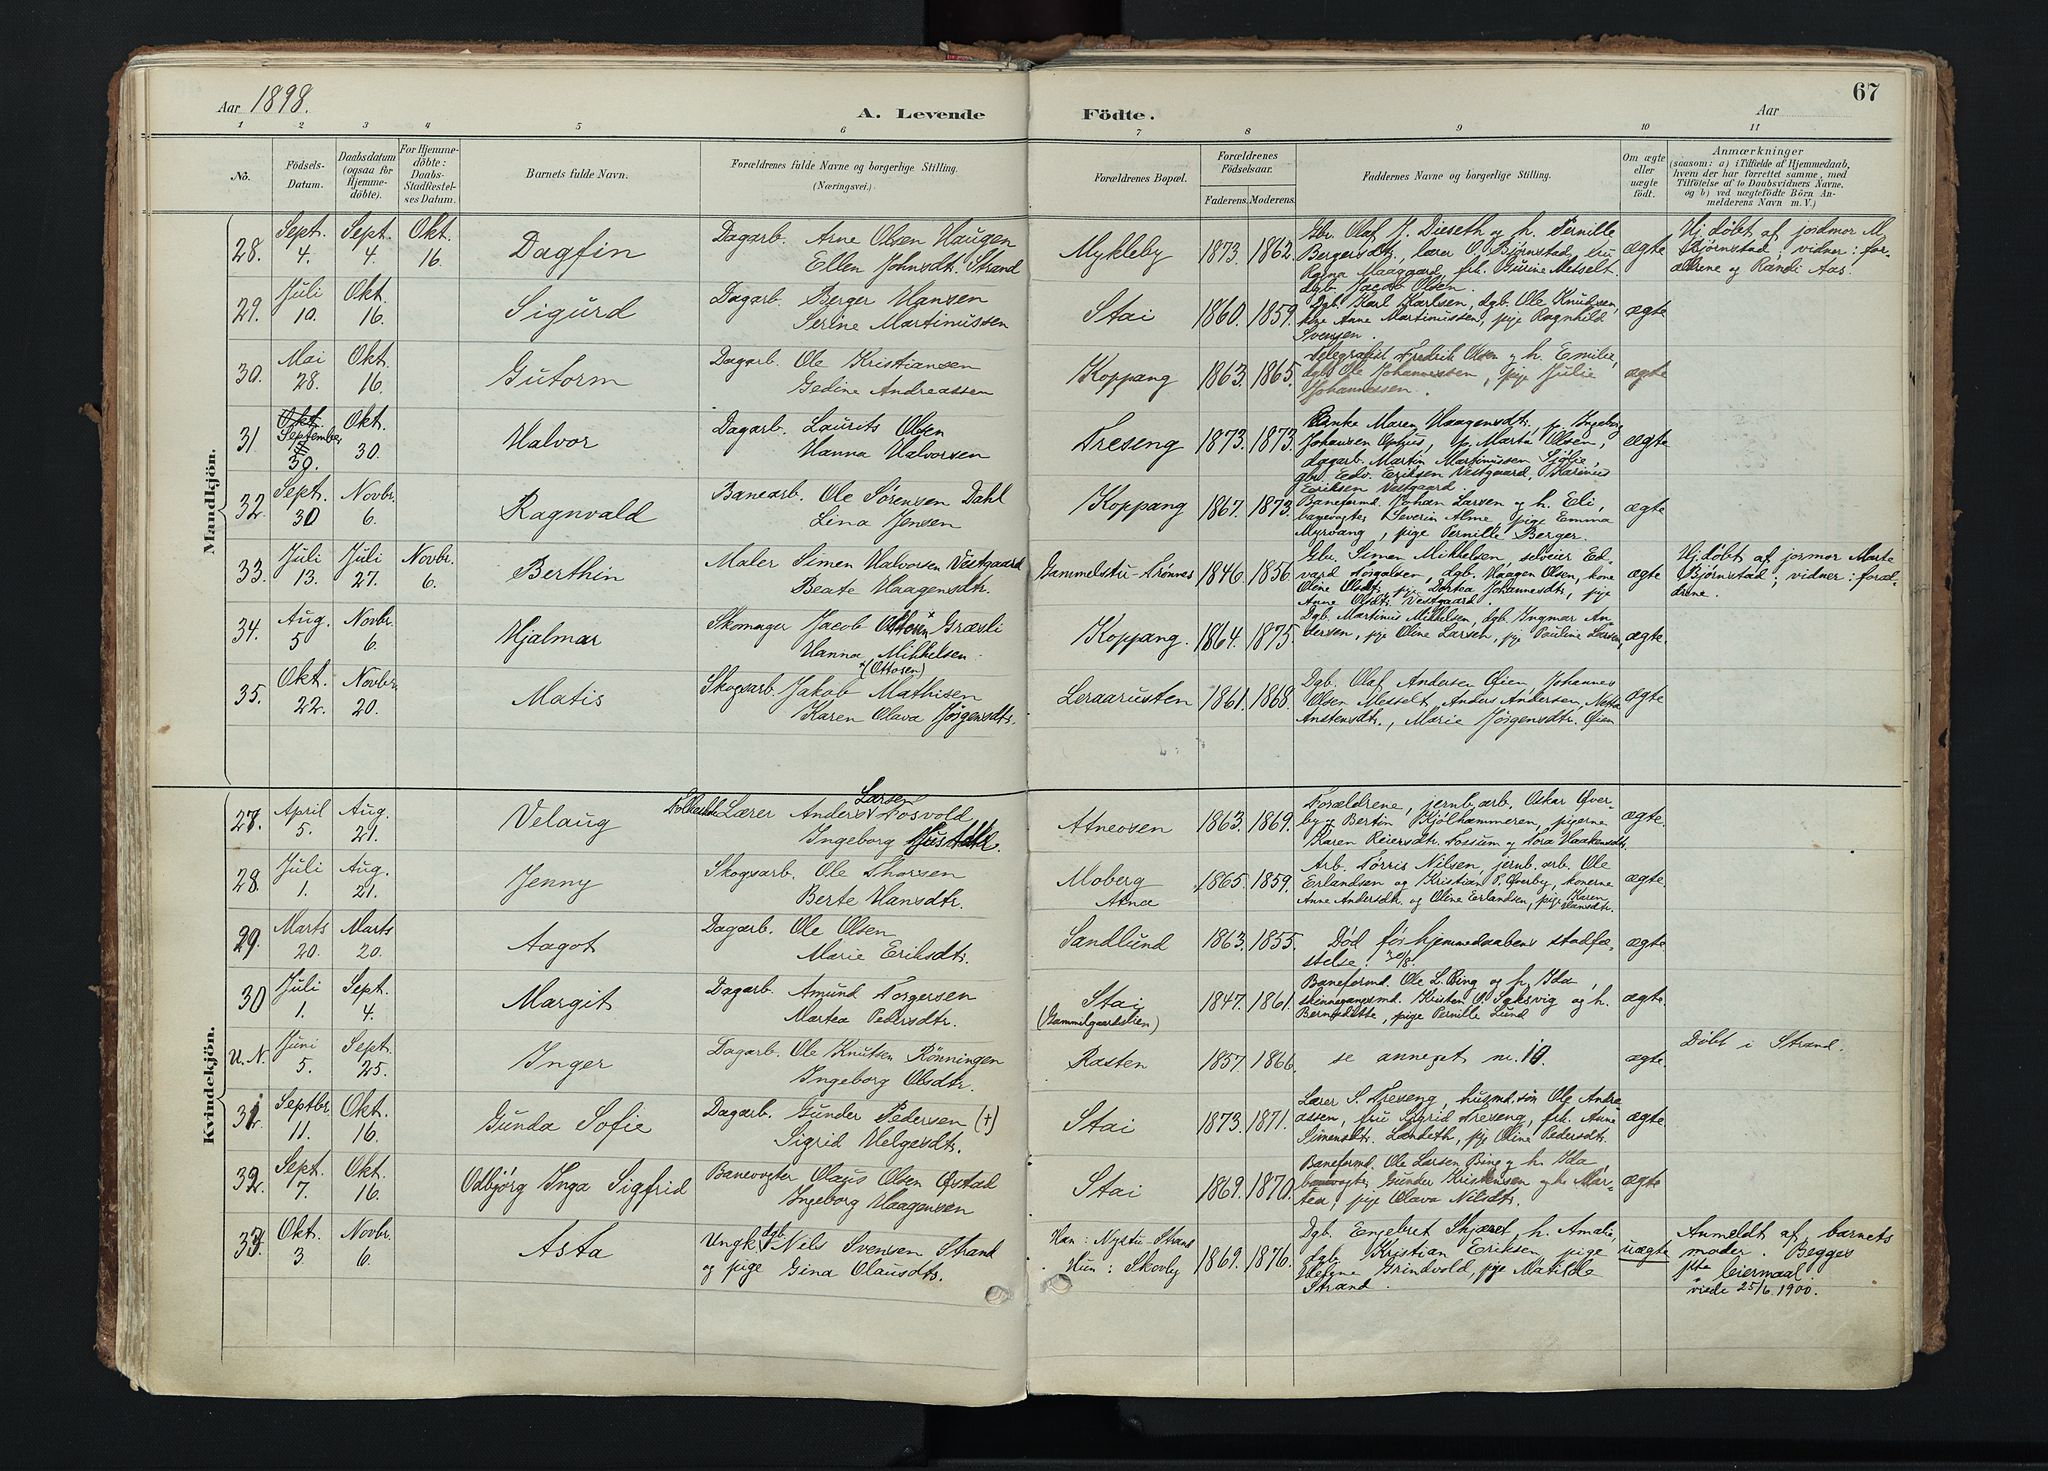 Aar 1898.
A. Levende
Födte.
Aar
67
1 2 3 4 5 6 7 8 9 10 11
No.
Födsels-Datum.
Daabsdatum (ogsaa for Hjemmedöbte).
For Hjemmedöbte: Daabs-Stadfæstelses Datum.
Barnets fulde Navn.
Forældrenes fulde Navne og borgerlige Stilling.
(Næringsvei.)
Forældrenes Bopæl.
Forældrenes Födselsaar.
Faderens. Moderens.
Faddernes Navne og borgerlige Stilling.
Om ægte eller uægte födt.
Anmærkninger
(saasom: a) i Tilfælde af Hjemmedaab, hvem der har forrettet samme, med Tilföielse af to Daabsvidners Navne, og b) ved uægtefödte Börn Anmelderens Navn m. V.)
Mandkjön.
28. Sept. 4. Sept. 4. Okt. 16. Dagfin
Dagarb. Arne Olsen Haugen
Ellen Johnsdtr. Strand
Mykleby 1873. 1862.
Gbr. Olaf J. Dieseth og h. Pernille
Bergersdtr., lærer O. Bjørnstad, fru
Ragna Maagaard, frk. Gurine Messelt.
dgb. Jacob Olsen.
ægte
Hj. døbt af jordmor M.
Bjørnstad; vidner: for-
ældrene og Randi Aas.
29. Juli 10. Okt. 16. Sigurd
Dagarb. Berger Hansen
Serine Martinussen
Stai 1860. 1859.
Dgb. Karl Karlsen, dgb. Ole Knudsen,
kone Anne Martinussen, pige Ragnhild
Svensen.
ægte
30. Mai 28. Okt. 16. Gutorm
Dagarb. Ole Kristiansen
Gedine Andreassen
Koppang 1863. 1865.
Telegrafist Fredrik Olsen og h. Emilie,
dgb. Ole Johannessen, pige Julie
Johannessen.
ægte
31 Okt. September 30. Okt. 30. Halvor
Dagarb. Laurits Olsen
Hanna Halvorsen
Treseng 1873. 1873.
Enke Maren Haagensdtr., p. Ingeborg
Johansen Ophus, p. Marta Olsen,
dagarb. Martin Martinussen Sjølie
gbr. Edv. Eriksen Vestgaard, Karinus
Eriksen Vestgaard.
ægte
32. Sept. 30 Novbr. 6. Ragnvald
Banearb. Ole Sörensen Dahl
Lina Jensen
Koppang 1867. 1873.
Baneformd. Johan Larsen og h. Eli,
banevogter Severin Alme, pige Emma
Myrvang, pige Pernille Berger.
ægte
33. Juli 13. Juli 27. Novbr. 6. Berthin
Maler Simen Halvorsen Vestgaard
Beate Haagensdtr.
Gammelstu-Trønnes 1846. 1856.
Gbr. Simen Mikkelsen, selveier Ed-
vard Torgalsen, dgb. Haagen Olsen, kone
Oline Olsdtr., pige Dortea Johannesdtr., pige
Anne Olsdtr. Vestgaard.
ægte
Hj. døbt af jormor Marte
Bjørnstad; vidner: foræl-
drene.
34. Aug. 5 Novbr. 6. Hjalmar
Skomager Jacob Ottesen × Græsli
Hanna Mikkelsen.
× (Ottosen)
Koppang. 1864. 1875.
Dgb. Martinus Mikkelsen, dgb. Ingmar An-
dersen, pige Oline Larsen, pige Pauline Larsen,
ægte.
35. Okt. 22. Novbr. 20. Matis
Skogsarb. Jakob Mathisen
Karen Olava Jørgensdtr.
Leraarusten 1861. 1868.
Dgb. Olaf Andersen Øien, Johannes
Olsen Messelt, Anders Andersen,
Anstensdtr., Marie Jørgensdtr. Øien
ægte
Kvindekjön.
27. April 5. Aug. 21. Velaug
Lærer Anders Larsen Fosvold
Ingeborg
Atneosen 1863. 1869.
Forældrene, jernb.arb. Oskar Øver-
by og Bertin Kjølhammeren, pigerne
Karen Reiersdtr. Fossum og Tora Haakensdtr.
ægte.
28. Juli 1. Aug. 21. Jenny
Skogsarb. Ole Thorsen
Berte Hansdtr.
Moberg
Atna
1865. 1859.
Arb. Tørris Nilsen, jernb.arb. Ole
Erlandsen og Kristian P. Øverby, konerne
Anne Andersdtr. og Oline Erlandsen, pige Karen
Hansdtr.
ægte.
29. Marts 20. Marts 20. Aagot
Dagarb. Ole Olsen
Marie Eriksdtr.
Sandlund 1863. 1855.
Død før hjemmedaabens stadfæ-
stelse. 30/8.
ægte
30 Juli 1. Sept. 4. Margit
Dagarb. Amund Torgersen
Martea Pedersdtr.
Stai
(Gammelgaardslien)
1847. 1861.
Baneformd. Ole L. Bing og h. Ida,
skinnegangsmd. Kristen O. Saksvig og h.
Bernditte, pige Pernille Lund
ægte.
U. N. Juni 5. Sept. 25. Inger
Dagarb. Ole Knutsen Rönningen
Ingeborg Olsdtr.
Rasten 1857. 1866.
se annexet nr. 10.
ægte.
Döbt i Strand.
31. Septbr. 11. Okt. 16. Gunda Sofie
Dagarb. Gunder Pedersen (+)
Sigrid Helgesdtr.
Stai 1873. 1871.
Lærer S. Treseng, husmd.søn Ole Andre-
assen, fru Sigrid Treseng, frk. Anne
Simensdtr. Landeth, pige Oline Pedersdtr.
ægte
32. Sept. 7. Okt. 16. Odbjörg Inga Sigfrid
Banevogter Olaus Olsen Øvstad
Ingeborg Haagensen
Stai 1869. 1870.
Baneformd. Ole Larsen Bing og h. Ida
banevogter Gunder Kristensen og h. Mar-
tea, pige Olava Nilsdtr.
ægte
33. Okt. 3. Novbr. 6. Asta
Ungk. dgb. Nils Svensen Strand
og pige Gina Olausdtr.
Han: Nystu-Strand
Hun: Skovby
1869. 1876.
Dgb. Engebret Skjæret, h. Amalie,
dgb. Kristian Eriksen, pige
Grindvold, pige Matilde
Strand.
uægte
Anmeldt af barnets
moder. Begges
1ste leiermaal.
viede 25/6. 1900.